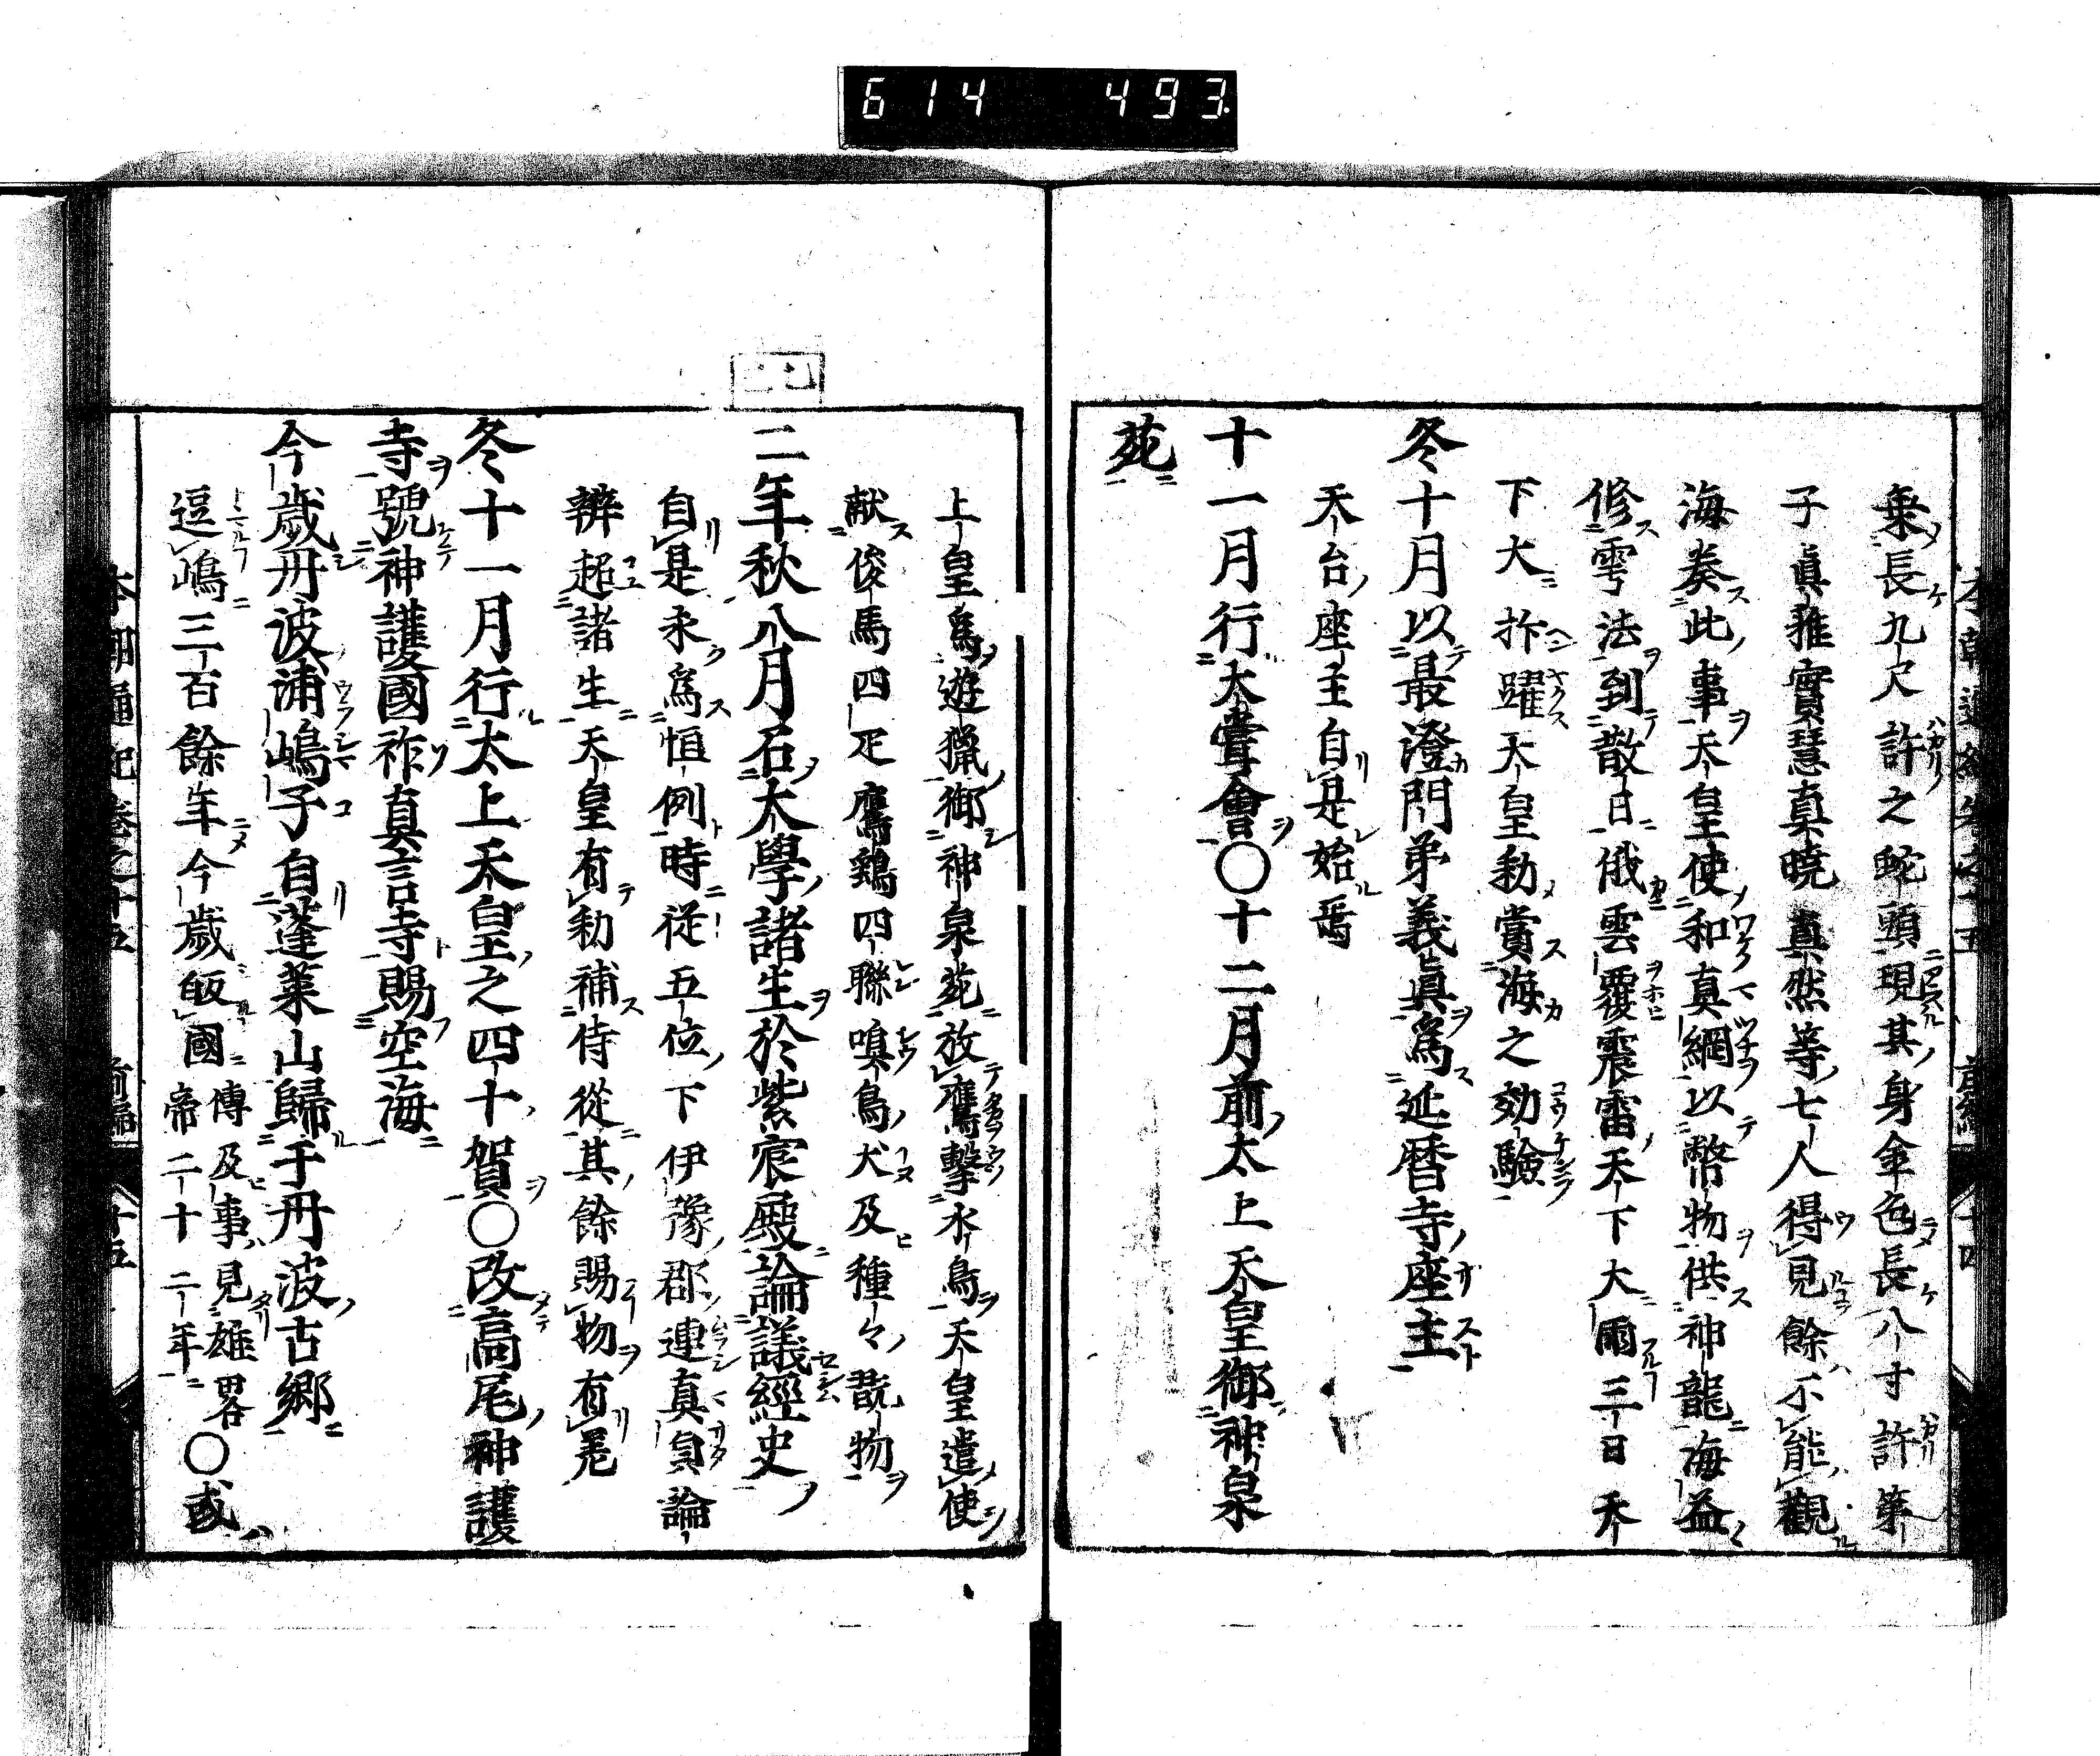 614 493
乗長九尺許之蛇頭現其身金色長八寸許第
子眞雅實慧真暁真然等七人得見餘不能觀
海奏此事天皇使和真綱以幣物供神龍海益
修雩法到散日俄雲覆震雷天下大雨三日天
下大抃躍天皇勅賞海之効驗
冬十月以最澄門弟義眞爲延暦寺座主
天台座主自是始焉
十一月行大嘗會〇十二月前太上天皇御神泉
苑
上皇爲遊猟御神泉苑放鷹撃水鳥天皇遣使
献俊馬四疋鷹鷄四聯嗅鳥犬及種々翫物
二年秋八月召大學諸生於紫宸殿論議經史
自是永爲恒例時從五位下伊豫郡連真貟論
辨超諸生天皇有勅補侍從其餘賜物有差
冬十一月行太上天皇之四十賀〇改高尾神護
寺號神護國祚真言寺賜空海
今歳丹波浦嶋子自蓬莱山歸于丹波古郷
逗嶋三百餘年今歳皈國傳及事見雄畧帝二十二年〇或
本朝通紀巻之十五 前編 十五